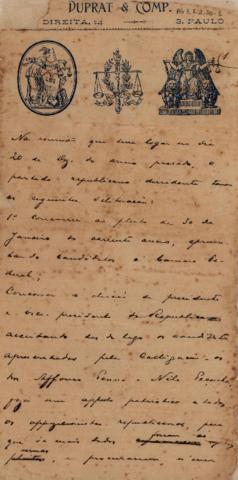 DUPRAT & COMP.
DIREITA, 14 S. PAULO
Na reunião que teve logar no dia
20 de Dz. do anno passado, o
partido republicano dissidente tomou
as seguintes deliberações:
1ª Concorrer ao pleito de 30 de
Janeiro do corrente anno, apresen
tando candidatos á Camara Fe
deral;
Concorrer a eleição de presidente
e vice-presidente da Republica
acceitando desde logo os candidatos
apresentados pela Colligação - os
drs Affonso Penna e Nilo Peçanha,
fazer um appello patriotico a todos
os opposicionistas republicanos, para
que se
urnas
e procurarem